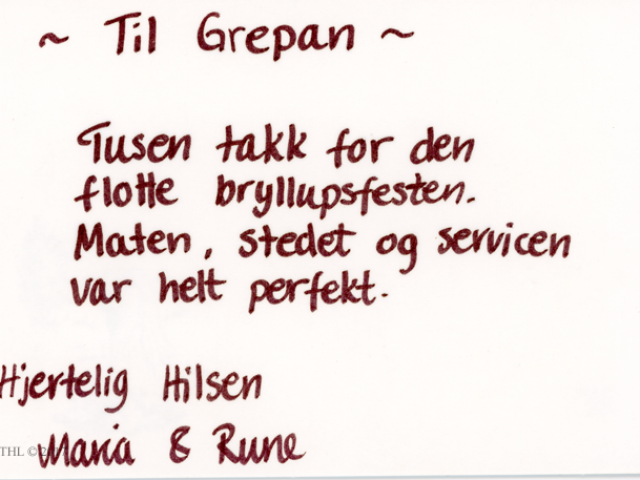 ~ Til Grepan ~
Tusen takk for den
flotte bryllupsfesten.
Maten, stedet og servicen
var helt perfekt.
Hjertelig Hilsen
Maria & Rune
THL ©